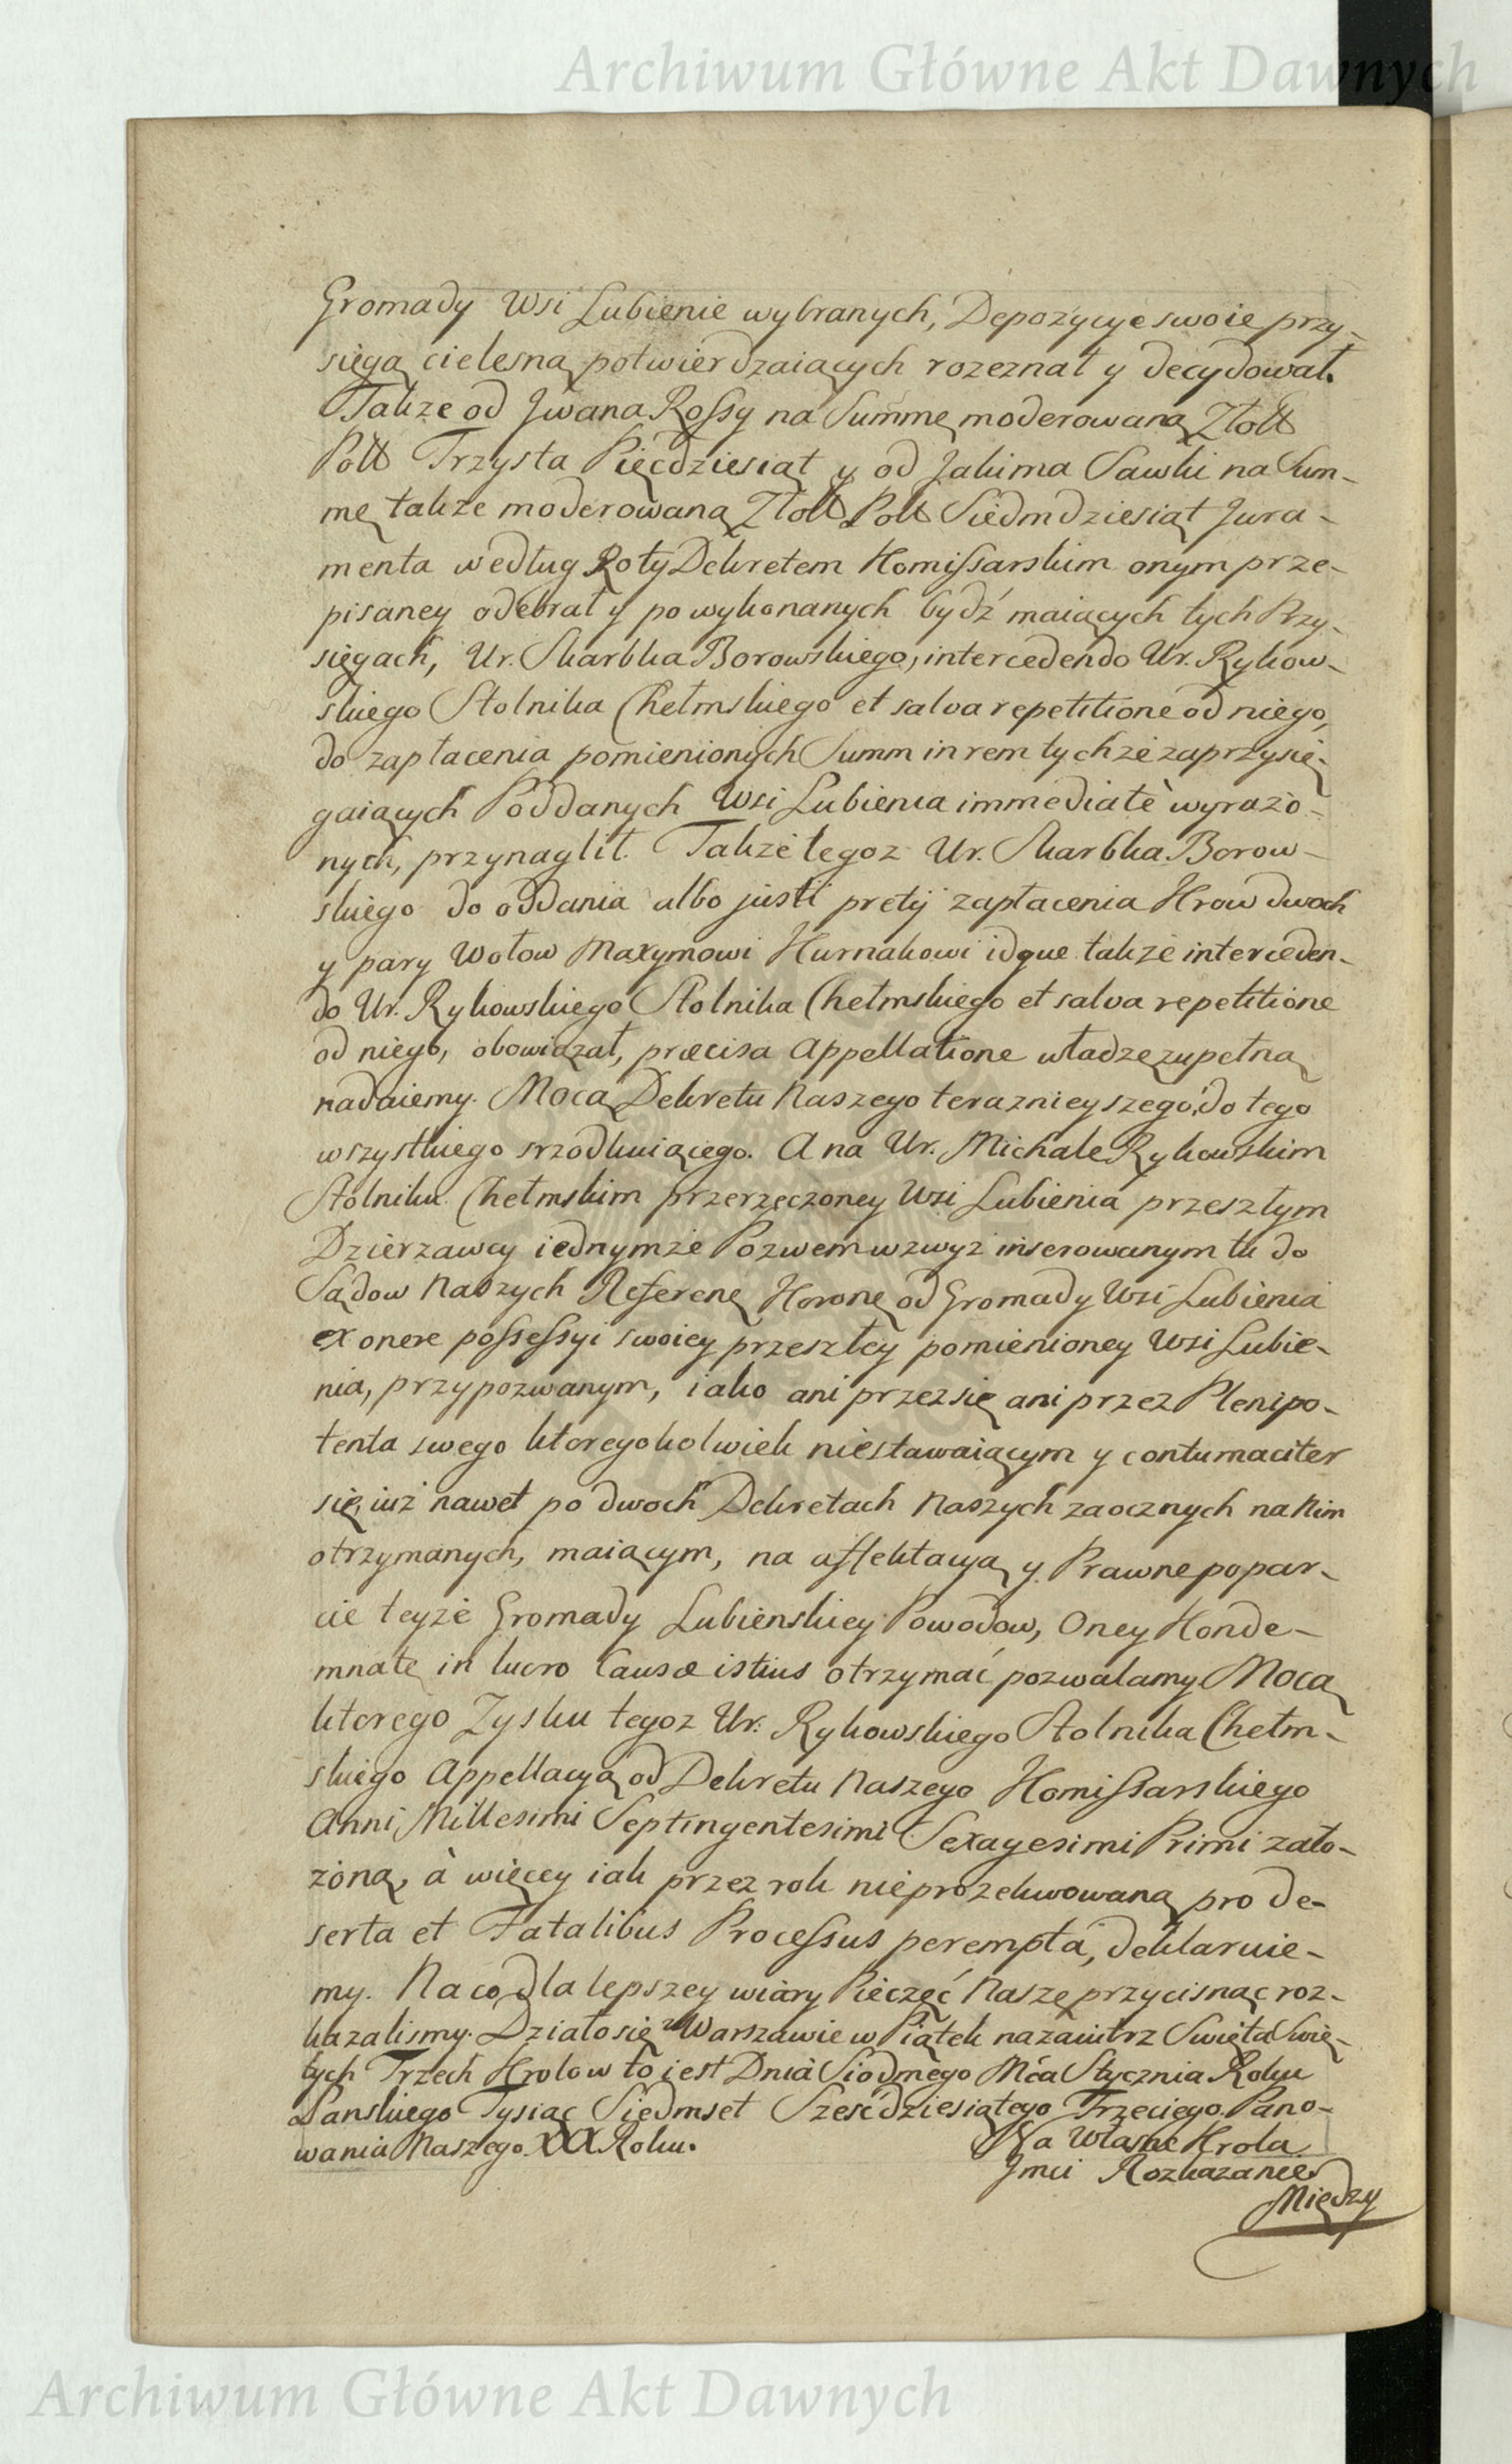 Archiwum Główne Akt Dawnych
Gromady Wsi Lubienie wybranych, Depozycye swoie przy-
sięgą cielesną potwierdzaiących rozeznał y decydował.
Także od Jwana Rossy na Summę moderowaną Złott
Pott Trzysta Pięćdziesiąt y od Jakima Sawki na Sum-
mę także moderowaną Złott Pott Siedmdziesiąt Jura-
menta według Roty Dekretem Kommissarskim onym prze-
pisaney odebrał y po wykonanych bydź maiących tych Przy-
sięgach, Ur. Skarbka Borowskiego, intercedendo Ur. Rykow-
skiego Stolnika Chełmskiego et salva repetitione od niego,
do zapłacenia pomienionych Summ in rem tychże zaprzysię-
gaiących Poddanych Wsi Lubienia immediatè wyrażo-
nych, przynaglił. Także tegoz Ur. Skarbka Borow-
skiego do oddania albo justi pretij zapłacenia Krow dwoch
y pary Wołow Maxymowi Kurnakowi idque także interceden-
do Ur. Rykowskiego Stolnika Chełmskiego et salva repetitione
od niego, obowiązał, præcisa Appellatione władzę zupełną
nadaiemy. Mocą Dekretu Naszego teraznieyszego, do tego
wszystkiego srzodkuiącego. A na Ur. Michale Rykowskim
Stolniku Chełmskim przerzęczoney Wsi Lubienia przeszłym
Dzierzawcy iednymże Pozwem wzwyz inserowanym tu do
Sądow Naszych Referenę Koronę od Gromady Wsi Lubienia
ex onere possessyi swoiey przeszłey pomienioney Wsi Lubie-
nia, przypozwanym, iako ani przez się ani przez Plenipo-
tenta swego ktoregokolwiek niestawaiącym y contumaciter
się iuż nawet po dwoch Dekretach Naszych zaocznych na Nim
otrzymanych, maiącym, na affektacyą y Prawne popar-
cie teyże Gromady Lubienskiey Powodow, Oney Konde-
mnatę in lucro Causæ istius otrzymać pozwalamy Mocą
ktorego Zysku tegoz Ur. Rykowskiego Stolnika Chełm-
skiego Appellacyą od Dekretu Naszego Komissarskiego
Anni Millesimi Septingentesimi Sexagesimi Primi zało-
żoną, à więcey iak przez rok nieprozekwowaną pro de-
serta et Fatalibus Processus perempta, deklaruie-
my. Na co dla lepszey wiary Pieczęć Naszę przycisnąć roz-
kazalismy. Działo się w Warszawie w Piątek nazaiutrz Swięta Swię-
tych Trzech Krolow to iest Dnia Siodmego Mca Stycznia Roku
Panskiego Tysiąc Siedmset Szesćdziesiątego Trzeciego. Pano-
wania Naszego XXX Roku.
Na Własne Krola
Jmci Rozkazanie
Między
Archiwum Główne Akt Dawnych